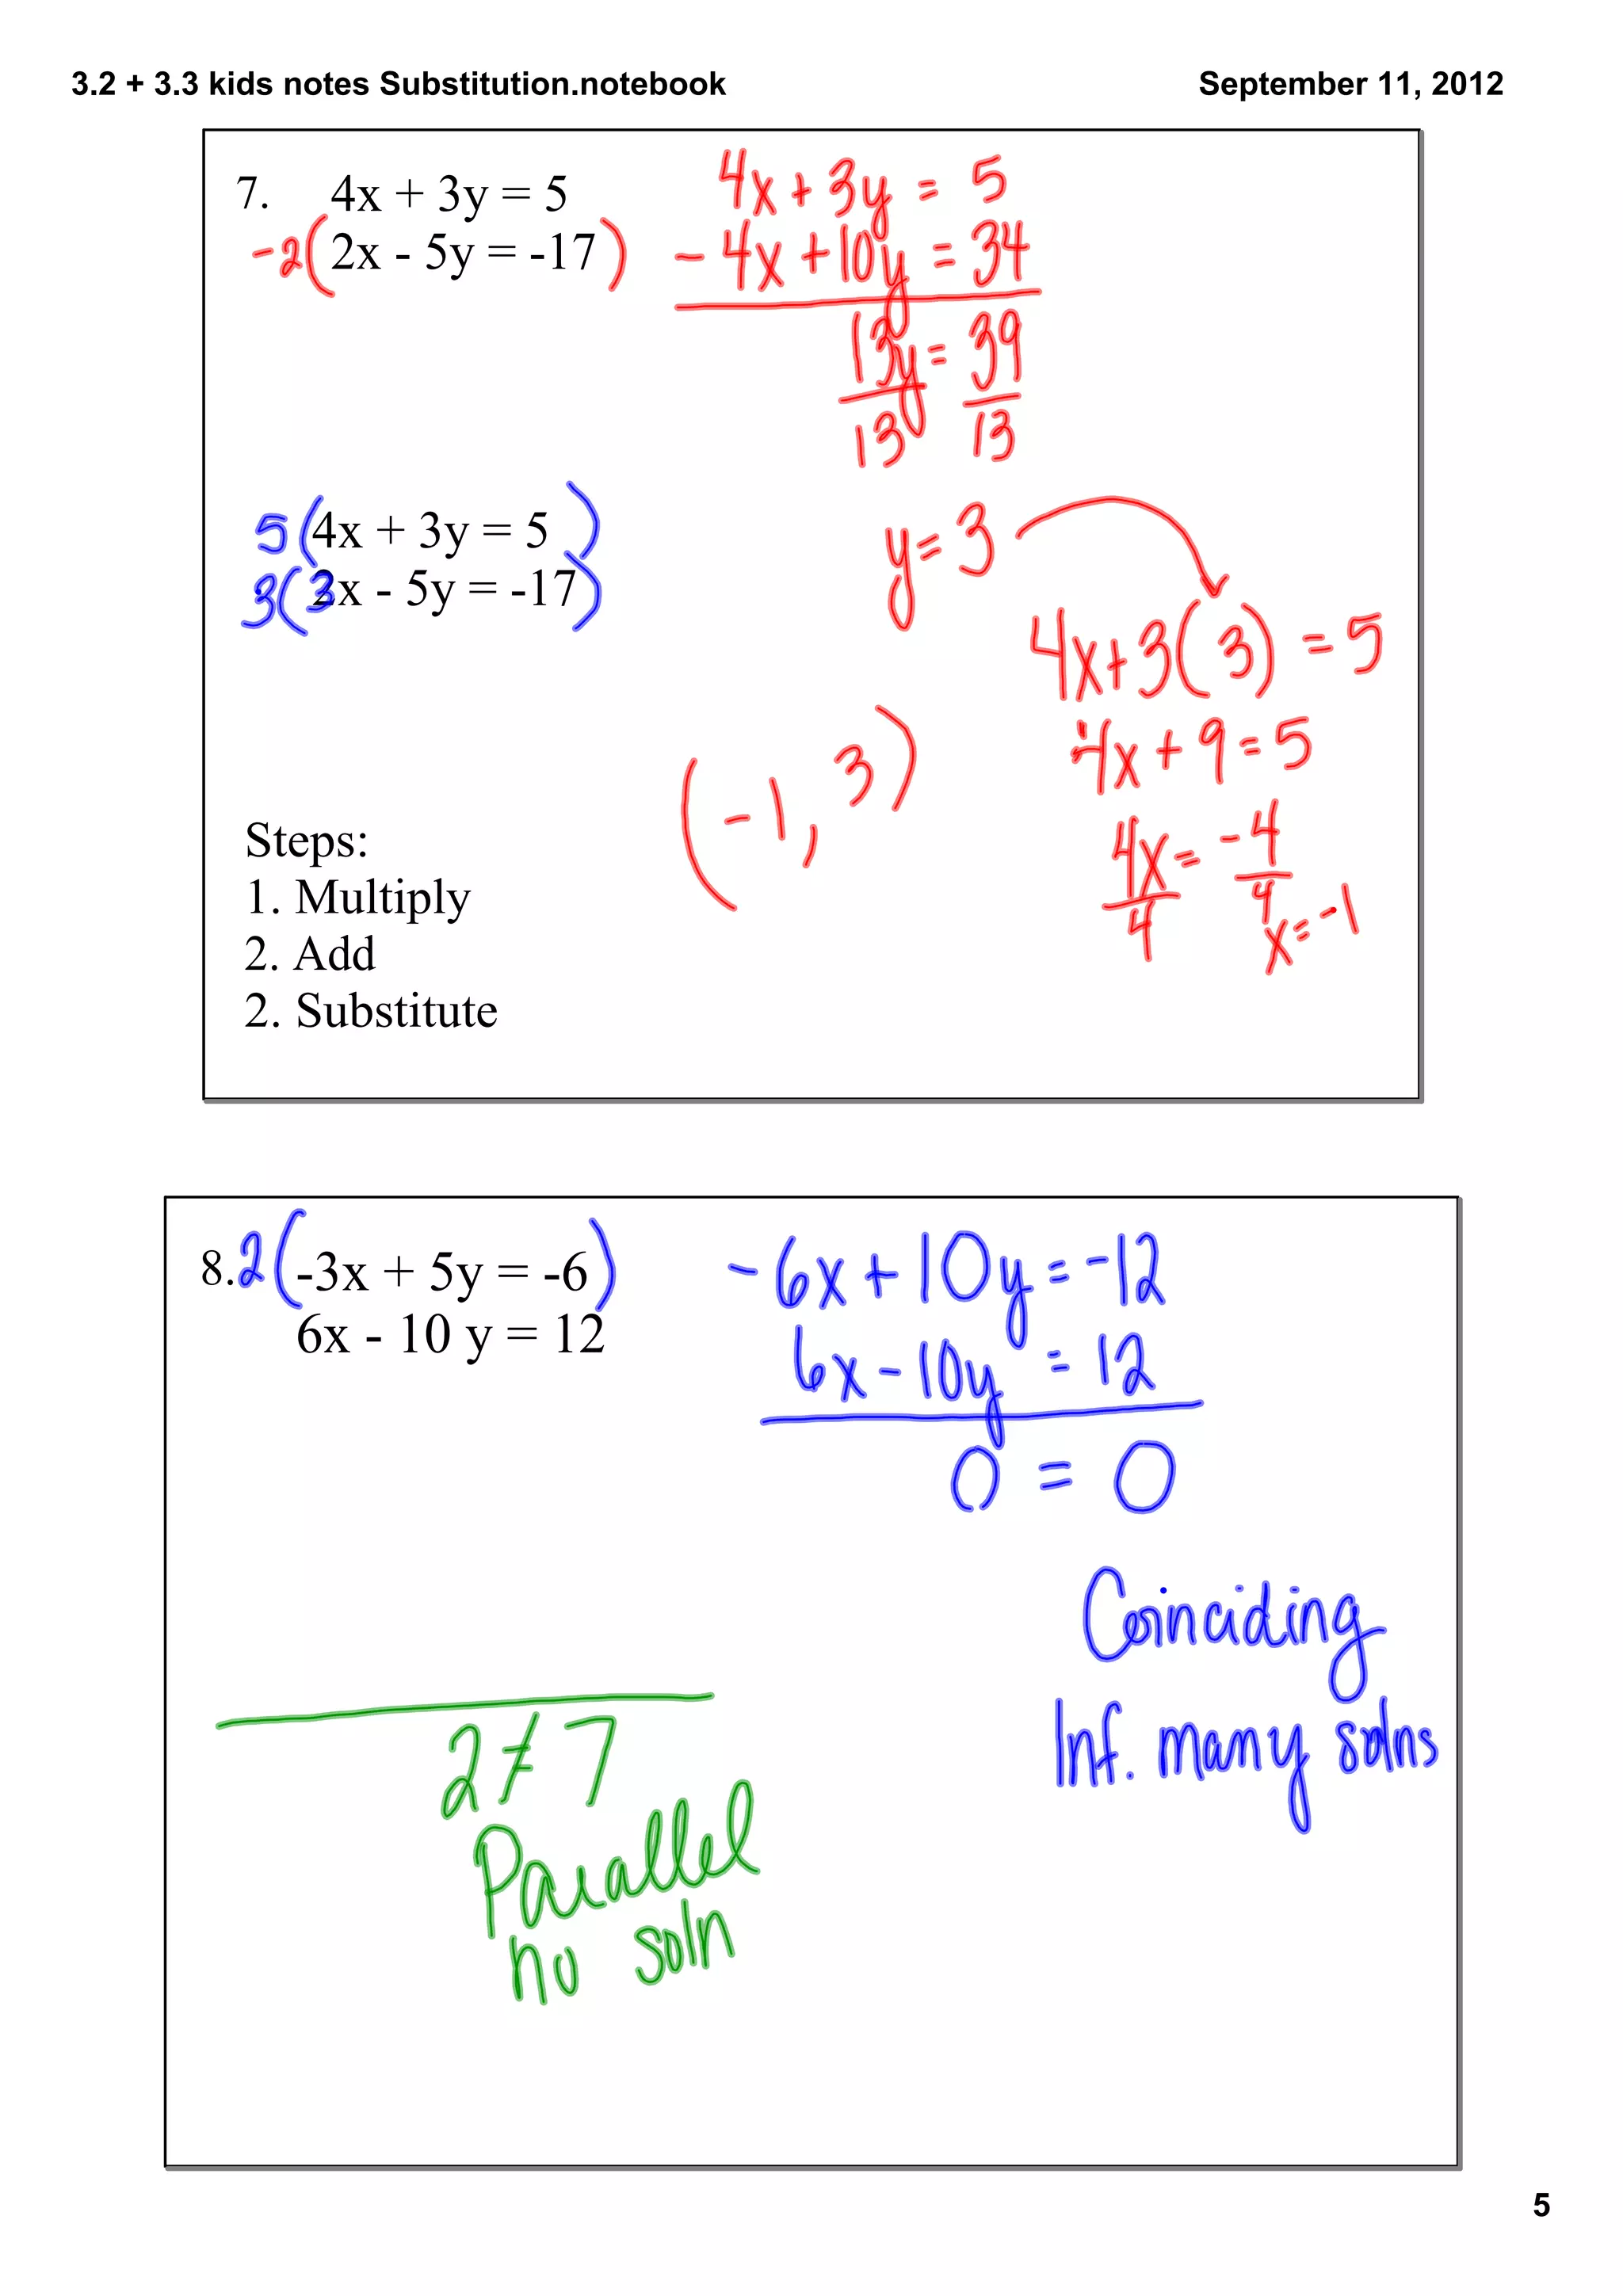 3.2 + 3.3 kids notes Substitution.notebook
September 11, 2012
7. 4x + 3y = 5
-2( 2x - 5y = -17 )
4x + 3y = 5
- 4x + 10y = 34
13y = 39
13 13
y = 3
4x + 3(3) = 5
4x + 9 = 5
4x = -4
4 4
x = -1
(-1, 3)
5( 4x + 3y = 5 )
3( 2x - 5y = -17 )
Steps:
1. Multiply
2. Add
2. Substitute
8. 2( -3x + 5y = -6 )
6x - 10 y = 12
-6x + 10y = -12
6x - 10y = 12
0 = 0
Coinciding
Inf. many solns
2 ≠ 7
Parallel
no soln
5